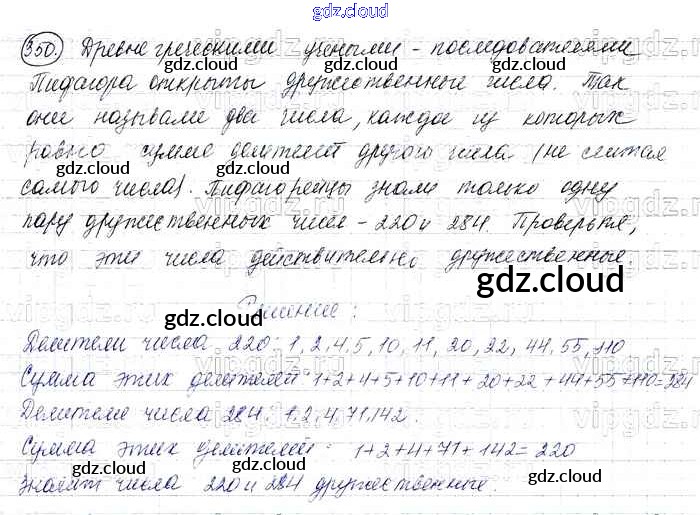 gdz.cloud
350. Древнегреческими учеными - последователями
Пифагора открыты дружественные числа. Так
они называли два числа, каждое из которых
равно сумме делителей другого числа (не считая
самого числа). Пифагорейцы знали только одну
пару дружественных чисел - 220 и 284. Проверьте,
что эти числа действительно дружественные.
Решение:
Делители числа 220: 1, 2, 4, 5, 10, 11, 20, 22, 44, 55, 110
Сумма этих делителей: 1+2+4+5+10+11+20+22+44+55+110=284
Делители числа 284: 1, 2, 4, 71, 142.
Сумма этих делителей: 1+2+4+71+142=220
Значит числа 220 и 284 дружественные.
gdz.cloud
gdz.cloud
gdz.cloud
gdz.cloud
gdz.cloud
gdz.cloud
gdz.cloud
gdz.cloud
gdz.cloud
gdz.cloud
gdz.cloud